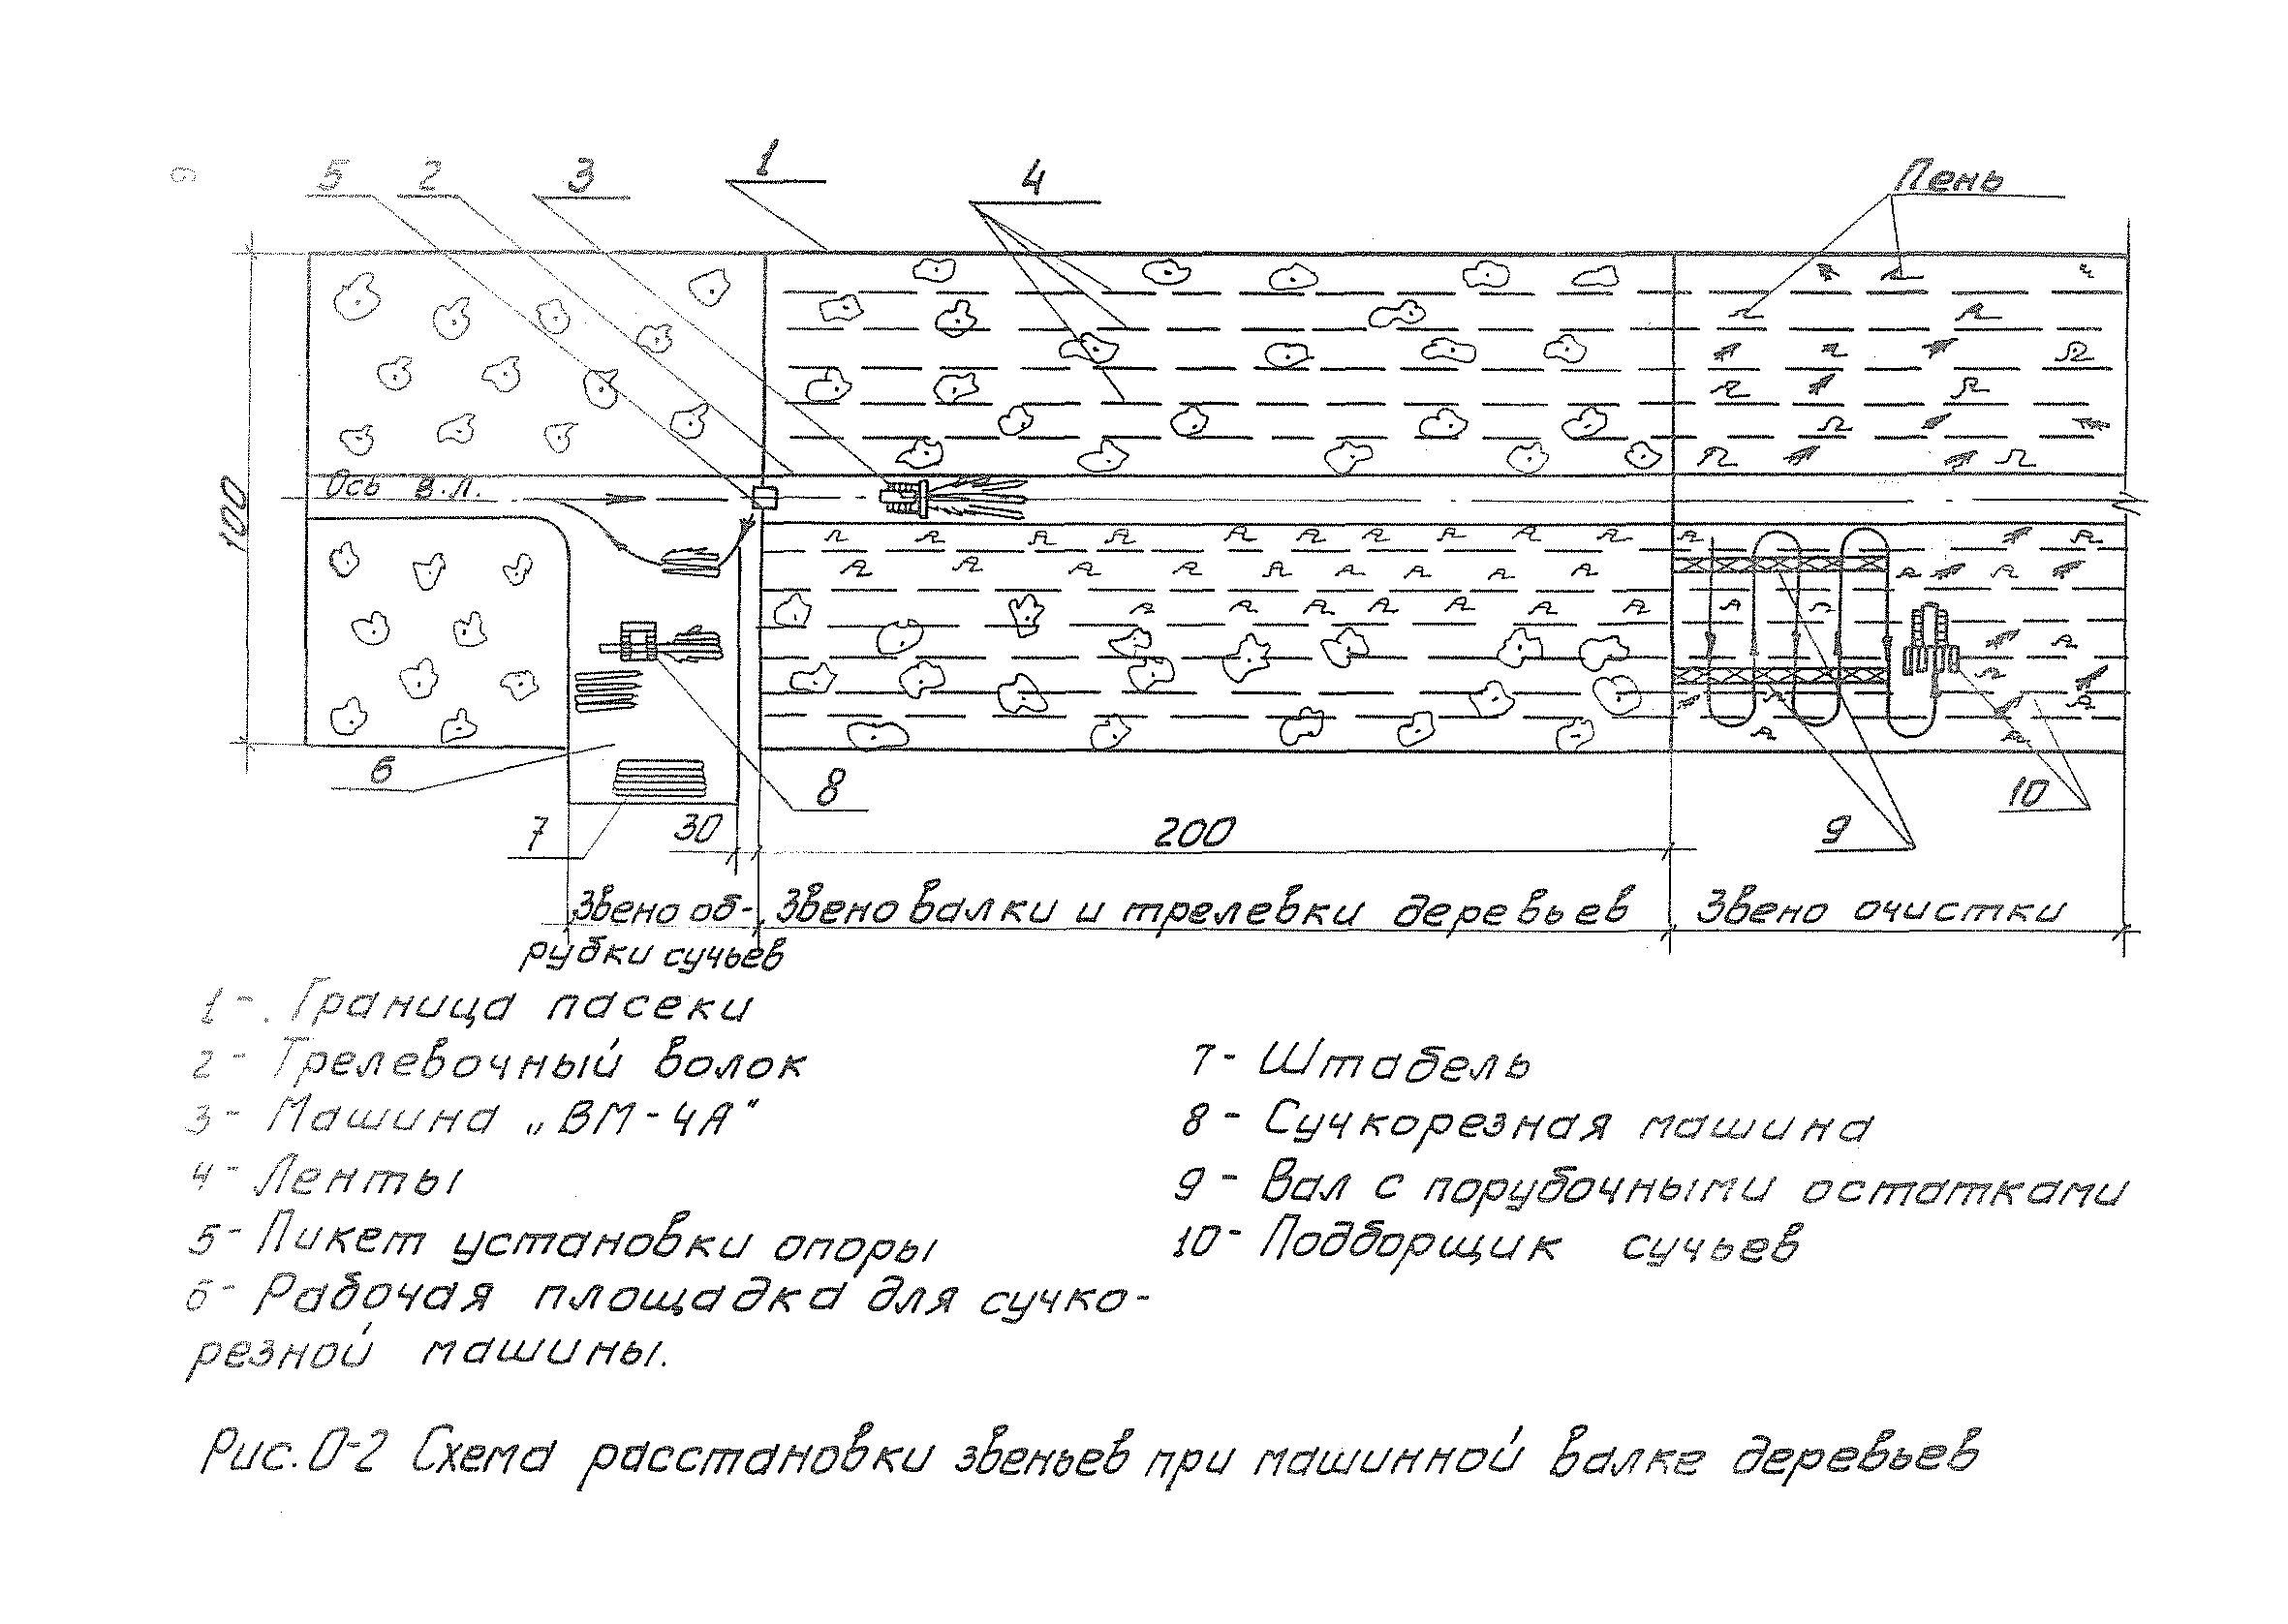 5 2 3 1 4 Пень
Ось В.Л.
100
6 7 30 8 200 9 10
Звено об- Звено валки и трелевки деревьев Звено очистки
рубки сучьев
1 - Граница пасеки
2 - Трелевочный волок
3 - Машина „ВМ-4А"
4 - Ленты
5 - Пикет установки опоры
6 - Рабочая площадка для сучко-
резной машины.
7 - Штабель
8 - Сучкорезная машина
9 - Вал с порубочными остатками
10 - Подборщик сучьев
Рис. О-2 Схема расстановки звеньев при машинной валке деревьев